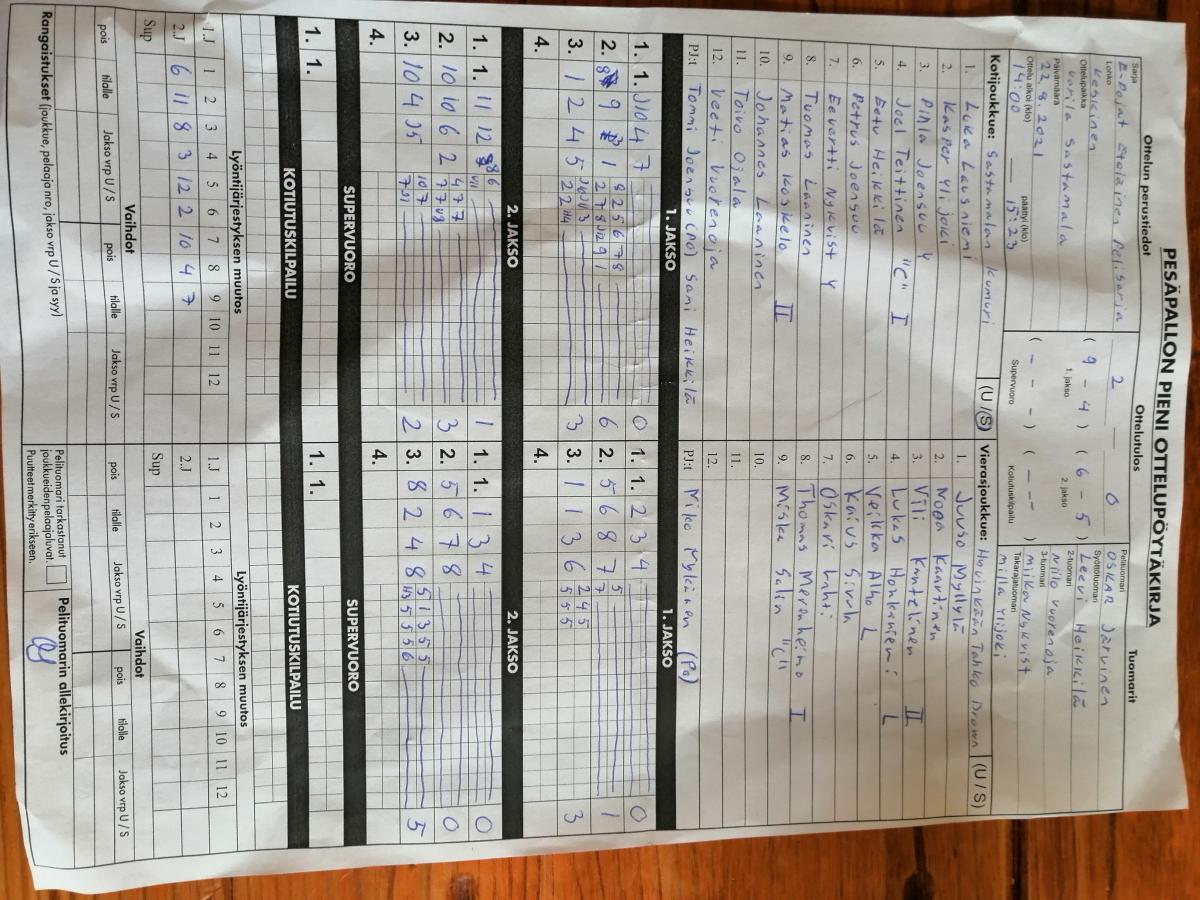 PESÄPALLON PIENI OTTELUPÖYTÄKIRJA
Ottelun perustiedot
Ottelutulos
Tuomarit
Sarja
E-Pojat Eteläinen Pelisarja
Lohko
Keskinen
Ottelupaikka
Varila Sastamala
Päivämäärä
22.8.2021
Ottelu alkoi (klo)
14:00
päättyi (klo)
15:23
2 — 0
( 9 - 4 ) ( 6 - 5 )
1. jakso
2. jakso
( - - - ) ( - - - )
Supervuoro
Kotiutuskilpailu
Pelituomari
OSKAR Järvinen
Syöttötuomari
Leevi Heikkilä
2-tuomari
Niilo Vuorenoja
3-tuomari
Miika Nykvist
Takarajatuomari
Milla Ylijoki
Kotijoukkue: Sastamalan Ikumuri (U/S)
1. Luka Lausniemi
2. Kasper Ylijoki
3. Pihla Joensuu Y
4. Joel Teittinen "C" I
5. Eetu Heikkilä
6. Petrus Joensuu
7. Eevertti Nykvist Y
8. Tuomas Laaninen
9. Matias Koskelo II
10. Johannes Laaninen
11. Toivo Ojala
12. Veeti Vuorenoja
PJ:t Tommi Joensuu (Po) Sami Heikkilä
Vierasjoukkue: Hyvinkään Tahko Brown (U/S)
1. Juuso Myllylä
2. Nooa Kaartinen
3. Vili Kantelinen II
4. Lukas Honkaniemi L
5. Veikka Alho L
6. Kaius Sivula
7. Oskari Lahti
8. Thomas Merenheimo I
9. Miska Salin "C"
10.
11.
12.
PJ:t Niko Kyllönen (Po)
1. JAKSO
1. JAKSO
2. 6
3. 1 2 4 5 3
4.
1. 1. 2 3 4 0
2. 5 6 8 7 1
3. 1 1 3 6 3
4.
2. JAKSO
2. JAKSO
1. 1. 11 12 1
2. 10 10 6 2 3
3. 10 4 2
4.
1. 1. 1 3 4 0
2. 5 6 7 8 0
3. 8 2 4 8 5
4.
SUPERVUORO
SUPERVUORO
1. 1.
1. 1.
KOTIUTUSKILPAILU
KOTIUTUSKILPAILU
Lyöntijärjestyksen muutos
1 2 3 4 5 6 7 8 9 10 11 12
1.J
2.J 6 11 8 3 12 2 10 4 7
Sup
Lyöntijärjestyksen muutos
1 2 3 4 5 6 7 8 9 10 11 12
1.J
2.J
Sup
Vaihdot
pois tilalle Jakso vrp U / S pois tilalle Jakso vrp U / S
Vaihdot
pois tilalle Jakso vrp U / S pois tilalle Jakso vrp U / S
Rangaistukset (joukkue, pelaaja nro, jakso vrp U / S ja syy)
Pelituomari tarkastanut
joukkueiden pelaajaluvat.
Puutteet merkitty erikseen.
Pelituomarin allekirjoitus